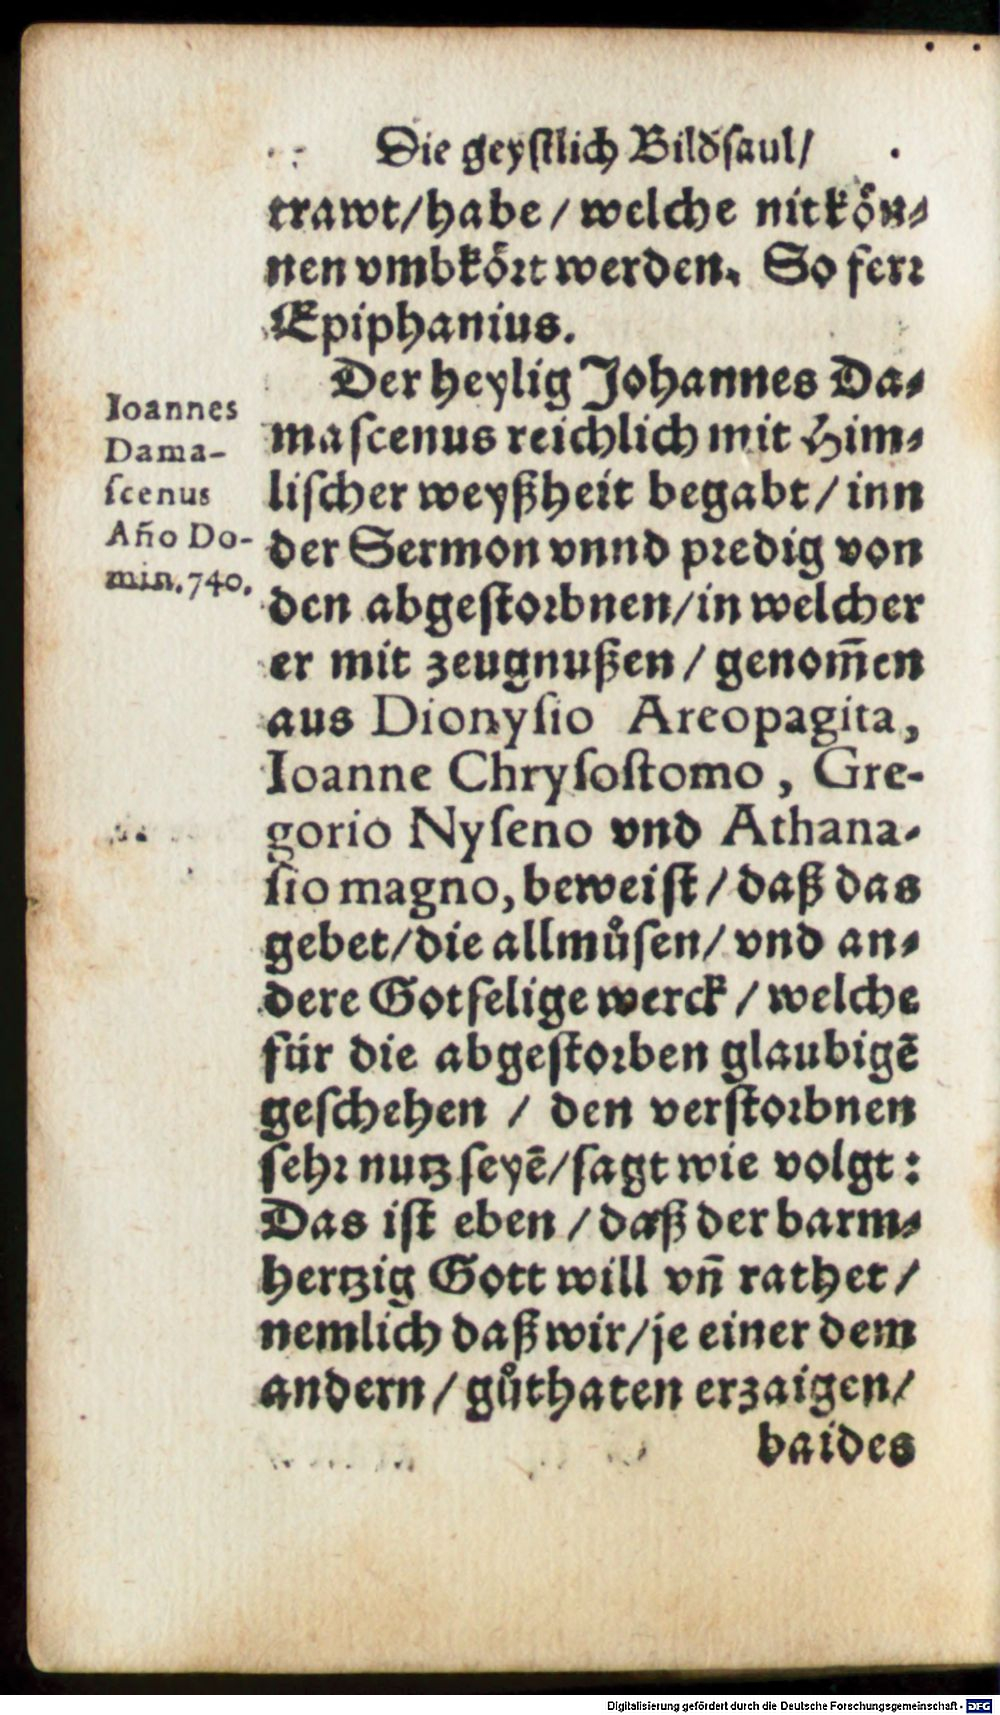 Die geyſtlich Bildſaul/
trawt/habe/welche nit koͤn⸗
nen vmbkoͤꝛt werden. So ferꝛ
Epiphanius.
Der heylig Johannes Da⸗
maſcenus reichlich mit Him⸗
liſcher weyßheit begabt/inn
der Sermon vnnd pꝛedig von
den abgeſtoꝛbnen/in welcher
er mit zeugnußen/genom̄en
aus Dionyſio Areopagita,
Ioanne Chryſoſtomo, Gre-
gorio Nyſeno vnd Athana⸗
ſio magno, beweiſt/daß das
gebet/die allmuͦſen/vnd an⸗
dere Gotſelige werck/welche
für die abgeſtoꝛben glaubigē
geſchehen/den verſtoꝛbnen
ſehꝛ nutz ſeyē/ſagt wie volgt:
Das iſt eben/daß der barm⸗
hertzig Gott will vn̄ rathet/
nemlich daß wir/je einer dem
andern/guͦthaten erzaigen/
baides
Ioannes
Dama-
ſcenus
Año Do-
min. 740.
Digitalisierung gefördert durch die Deutsche Forschungsgemeinschaft - DFG